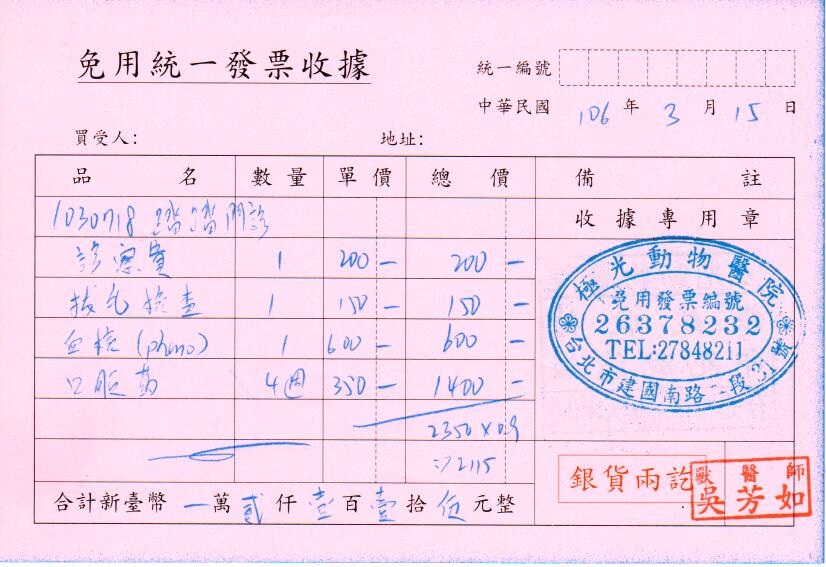 免用統一發票收據
統一編號
中華民國 106 年 3 月 15 日
買受人： 地址：
品名 數量 單價 總價 備註
1030718 踏踏門診 收據專用章
診察費 1 200— 200—
拔毛檢查 1 150— 150—
血檢(pheno) 1 600— 600—
口服藥 4週 350— 1400—
2350×0.9
=2115
極光動物醫院
免用發票編號
26378232
TEL:27848211
台北市建國南路二段31號
銀貨兩訖
獸醫師
吳芳如
合計新臺幣 一萬貳仟壹百壹拾伍元整